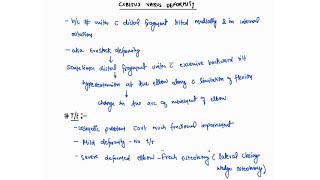 CUBITUS VARUS DEFORMITY
- b/c # unites c̄ distal fragment tilted medially & in internal
rotation
- aka Gunstock deformity
Sometimes distal fragment unites c̄ excessive backward tilt
↓
hyperextension at the elbow along c̄ limitation of flexion
↓
change in the arc of movement of elbow
# T/t :-
- cosmetic problem
much functional impairement
- Mild deformity - No t/t
- severe deformed elbow - French osteotomy (lateral closing
wedge osteotomy)